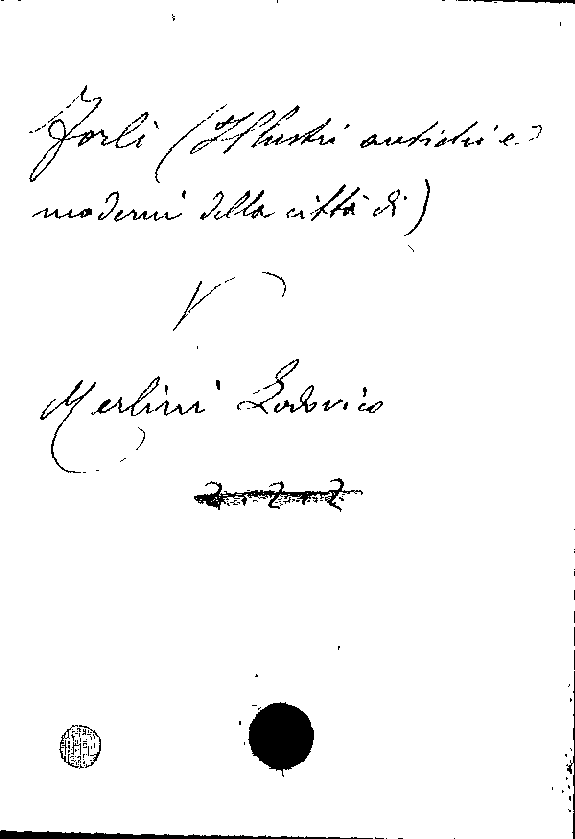 Forlì (Illustri antichi e
moderni della città di)
V
Merlini Lodovico
2.2.2